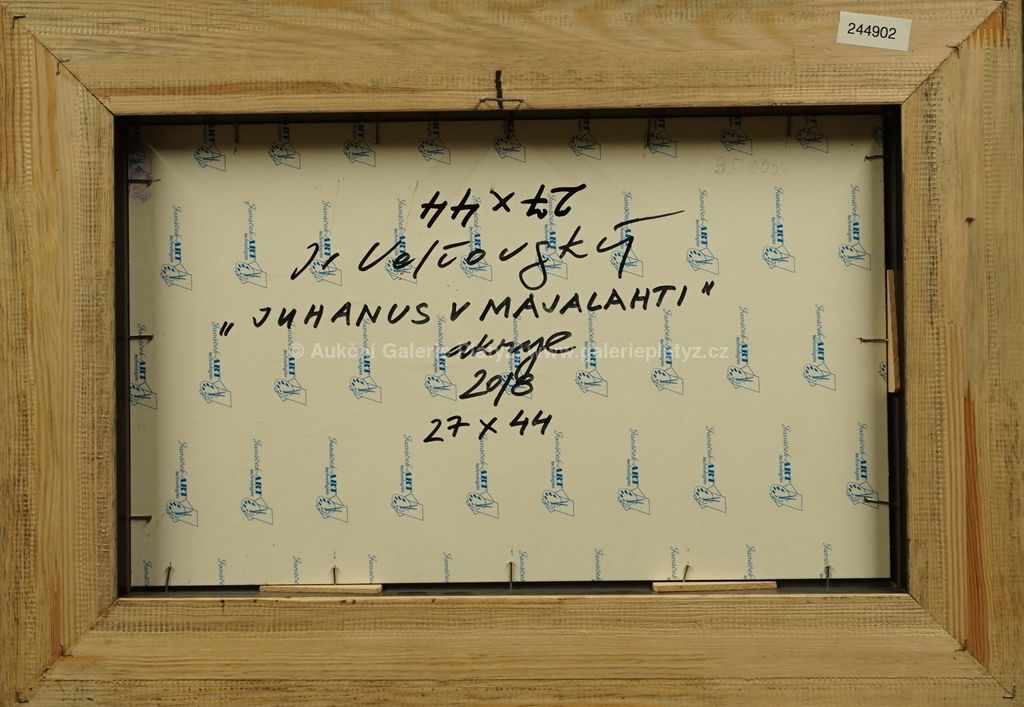 244902
27 x 44
Jr Velčovský
"JUHANUS V MAJALAHTI"
akryl
© Aukční Galerie Platýz - www.galerieplatyz.cz
2018
27 x 44
Janáček ART technologies